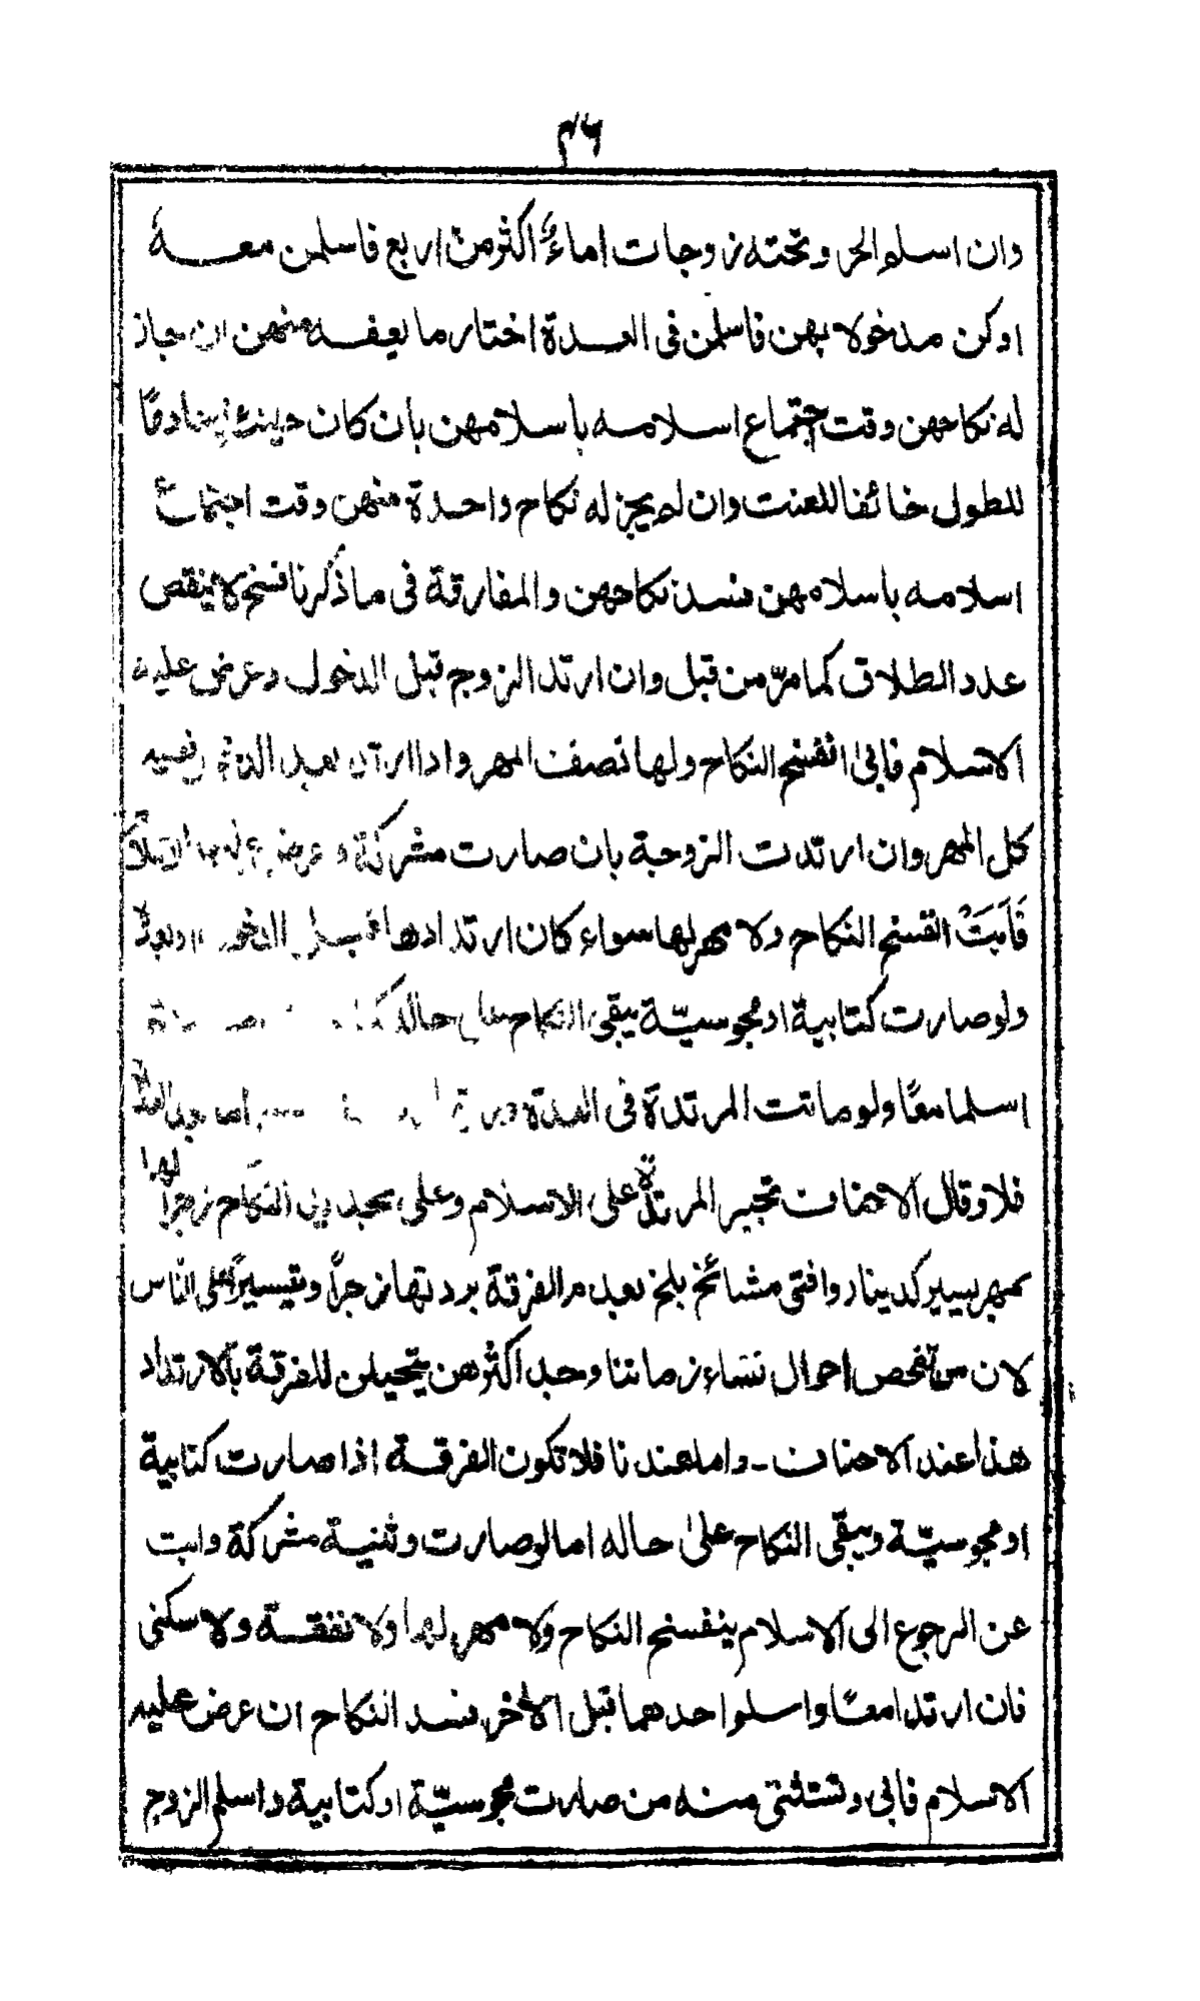 ٣٦
وان اسلم الحر وتحته زوجات اماءٌ اكثر من اربع فاسلمن معه
اوكن مدخولا بهن فاسلمن فى العدة اختار ما يعفه منهن ان جاز
له نكاحهن وقت اجتماع اسلامه باسلامهن بان كان حينئذ فاقدًا
للطول خائفا للعنت وان لم يجز له نكاح واحدة منهن وقت اجتماع
اسلامه باسلامهن فسد نكاحهن والمفارقة فى ما ذكرنا فسخ لا ينقص
عدد الطلاق كما مرّ من قبل وان ارتد الزوج قبل الدخول وعرض عليه
الاسلام فابى انفسخ النكاح ولها نصف المهر واذا ارتد بعد الدخول ففيه
كل المهر وان ارتدت الزوجة بان صارت مشركة وعرض عليها الاسلام
فَاَبَتْ انفسخ النكاح ولا مهر لها سواء كان ارتدادها قبل الدخول او بعده
ولو صارت كتابية او مجوسيّة يبقى النكاح على حاله
اسلما معًا ولو ماتت المرتدة فى العدة اما بعد العدة
فلا وقال الاحناف تجبر المرتدة على الاسلام وعلى تجديد النكاح زجرًا لها
بمهر يسير كدينار وافتى مشائخ بلخ بعدم الفرقة بردتها زجرًا وتيسيرًا على الناس
لان من تفحص احوال نساء زماننا وجد اكثرهن يتحيلن للفرقة بالارتداد
هذا عند الاحناف ـ واما عندنا فلا تكون الفرقة اذا صارت كتابية
او مجوسيّة ويبقى النكاح على حاله اما لو صارت وثنية مشركة وابت
عن الرجوع الى الاسلام ينفسخ النكاح ولا مهر لها ولا نفقة ولا سكنى
فان ارتدا معًا واسلم احدهما قبل الاٰخر فسد النكاح ان عرض عليه
الاسلام فابى وتستثنى منه من صارت مجوسيّة او كتابية واسلم الزوج